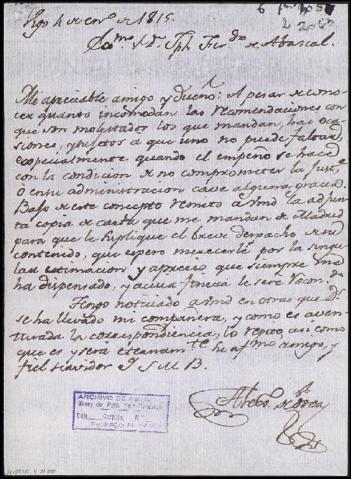 de 1815.
Exmo. S.r d.n Jph Fer.do de Abascal
Mi apreciable amigo y dueño: A pesar de cono=
cer quanto incomodan las recomendaciones con
que son molestados los que mandan, hai oca=
siones, y objetos a que uno no puede faltar,
especialmente quando el empeño se hace
con la condicion de no comprometer la Just.a
ó en su administracion cave alguna gracia.
Bajo de este concepto remito a Vmd la adjun
ta copia de carta que me mandan de Madrid
para que le suplique el breve despacho de su
contenido, que espero mereserle por la singu
lar estimacion y aprecio, que siempre me
ha dispensado, y a cuia fineza le seré recon.do
Tengo noticiado a Vmd en otras que D.s
se ha llevado mi compañera, y como es aven=
turada la correspondencia, lo repito asi como
que es y será eternam.te su af.mo amigo, y
fiel servidor Q. S. M. B.
ARCHIVO DE